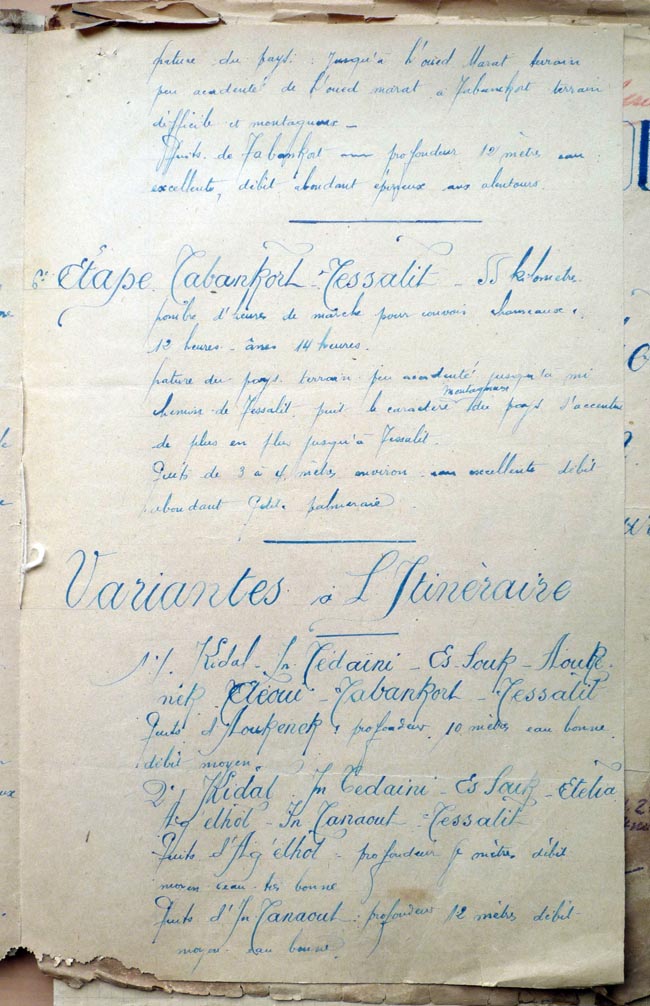 nature du pays : jusqu'à l'oued Marat terrain
peu accidenté de l'oued marat à Tabankort terrain
difficile et montagneux _
Puits de Tabankort profondeur 12 mètres eau
excellente, débit abondant épineux aux alentours.
6° Étape Tabankort - Tessalit - 55 kilometre.
nombre d'heures de marche pour convois chameaux.
12 heures - ânes 14 heures.
nature du pays terrain peu accidenté jusqu'à mi
montagneux
chemin de Tessalit puit le caractère du pays s'accentue
de plus en plus jusqu'à Tessalit.
Puits de 3 à 4 mètres environ - eau excellente débit
abondant petite palmeraie
Variantes à L'Itinèraire
1°/. Kidal - In Tédaini - Es Souk - Aouke
nek Eléoui - Tabankort - Tessalit
Puits d'Aoukenek : profondeur 10 mètres eau bonne
débit moyen
2°/ Kidal In Tedaini - Es Souk - Etelia
Ag elhol - In Tanaout - Tessalit
Puits d'Ag'elhol - profondeur mètres débit
moyen eau très bonne
Puits d'In Tanaout : profondeur 12 mètres débit
moyen eau bonne